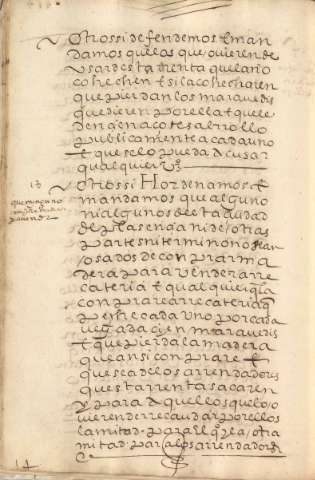 Otrossi defendemos t man
damos q̃ ellos que ovieren de
usar desta Renta que la no
cohechen t si la cohecharen
que pierdan los maravedis
que dieren por ella t que le
den çien açotes al rrollo
publicamente a cada uno
t que se lo pueda acusar
qualquier
Otrossi Hordenamos t
mandamos que alguno
ni algunos desta çiudad
de plasençia ni de otras
partes ni termino no sean
osados de conprar ma
dera para vender a rre
cateria t qual quier q̃ la
conprare a rrecateria q̃
peche cada uno por cada
vegada çien maravedis
t que pierda la madera
que ansi conprare t
que sea de los arrendadores
que esta rrenta sacaren
y para aquellos que lo o
vieren de rrecaudar por ellos
la mitad para el la otra
mitad para los arrendadores
13
que ninguno